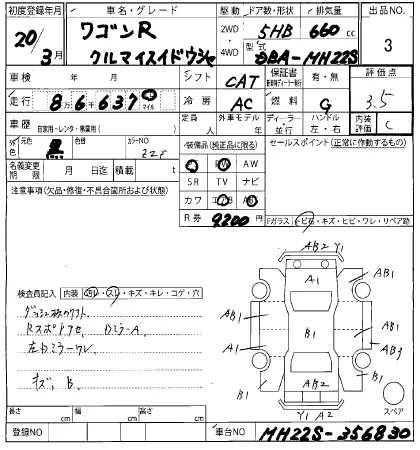 初度登録年月 車名・グレード 駆動 ドア数・形状 排気量 出品NO.
20/3月 ワゴンR クルマイスイドウシャ 2WD・4WD 5HB 660cc 3
型式 DBA-MH22S
車検 年 月 シフト CAT 保証書 有・無 評価点 3.5
走行 8万6千637 マイル 冷房 AC 燃料 G
車歴 自家用・レンタ・事業用( ) 定員 人 外車モデル 年 ディーラー・並行 ハンドル 左・右 内装評価 C
外色 元色 黒 色替 カラーNO ZZ8 装備品(純正品に限る) セールスポイント(正常に作動するもの)
名義変更期限 月 日迄 積載 t AW
SR TV ナビ
注意事項(欠品・修復・不具合箇所および状態) カワ
R券 9200円 Fガラス トビ石・キズ・ヒビ・ワレ・リペア跡
AB2 Y1
A1 AB1
検査員記入 内装 汚レ・スレ・キズ・キレ・コゲ・穴 AB1 AB1
B1
A1 AB3
左Dミラーワレ
キズ、B. B1 AB2 B1
スペア
Y1 A2
長さ cm 幅 cm 高さ cm
登録NO 車台NO MH22S-356830